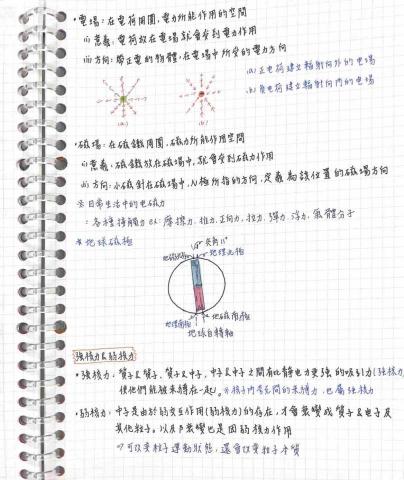 ・電場：在電荷周圍，電力所能作用的空間
(i) 意義：電荷放在電場就會受到電力作用
(ii) 方向：帶正電的物體，在電場中所受的電力方向
(a) 正電荷建立輻射向外的電場
(b) 負電荷建立輻射向內的電場
(a)
(b)
・磁場：在磁鐵周圍，磁力所能作用空間
(i) 意義：磁鐵放在磁場中，就會受到磁力作用
(ii) 方向：小磁針在磁場中，N極所指的方向，定義為該位置的磁場方向
※日常生活中的電磁力
：各種接觸力 ex：摩擦力、推力、正向力、拉力、彈力、浮力、氣體分子
※地球磁極
夾角11°
地理北極
地理南極
地磁南極
地球自轉軸
強核力&弱核力
・強核力：質子&質子、質子&中子、中子&中子之間有比靜電力更強的吸引力(強核力)
使他們能被束縛在一起。※核子內夸克間的束縛力，也屬強核力
・弱核力：中子是由於弱交互作用(弱核力)的存在，才會衰變成質子&電子及
其他粒子。以及β衰變也是因弱核力作用
可改變粒子運動狀態，還會改變粒子本質